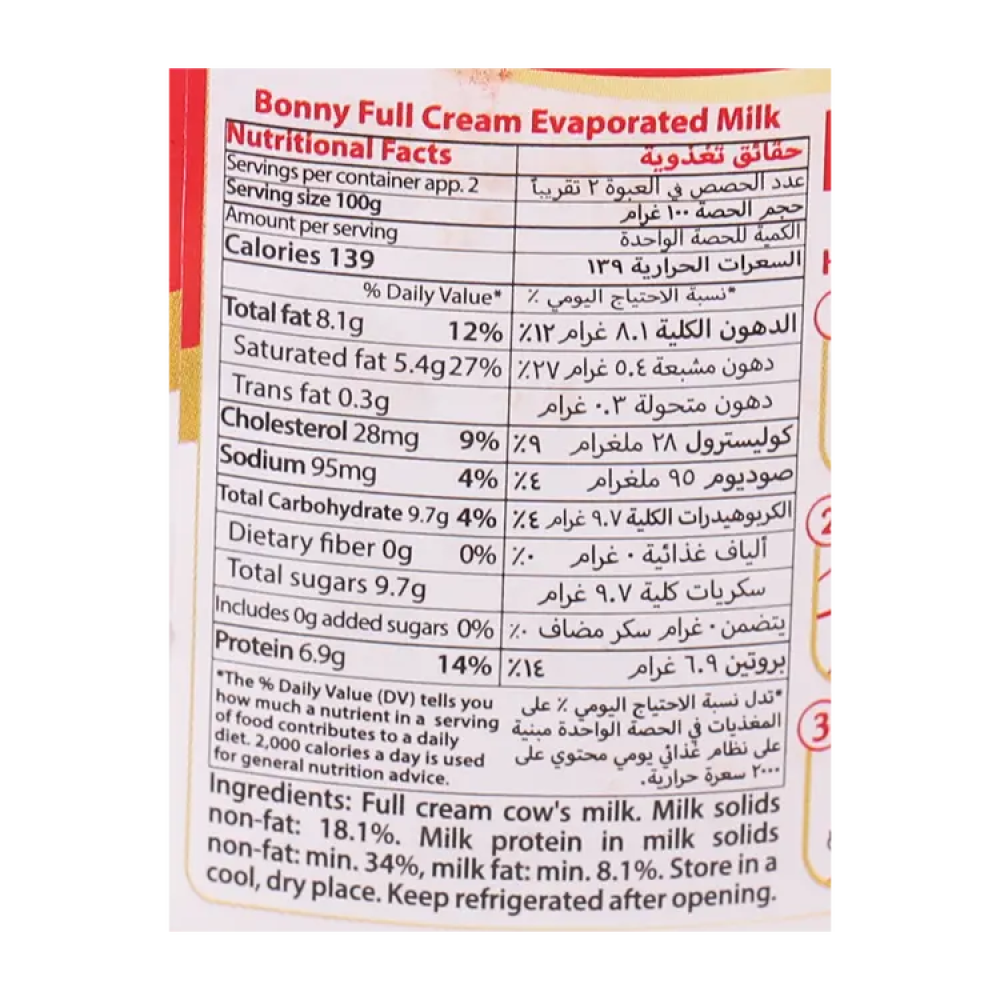 Bonny Full Cream Evaporated Milk
Nutritional Facts
حقائق تغذوية
Servings per container app. 2
عدد الحصص في العبوة ٢ تقريباً
Serving size 100g
حجم الحصة ١٠٠ غرام
Amount per serving
الكمية للحصة الواحدة
Calories 139
السعرات الحرارية ١٣٩
% Daily Value*
*نسبة الاحتياج اليومي ٪
Total fat 8.1g 12%
الدهون الكلية ٨.١ غرام ١٢٪
Saturated fat 5.4g 27%
دهون مشبعة ٥.٤ غرام ٢٧٪
Trans fat 0.3g
دهون متحولة ٠.٣ غرام
Cholesterol 28mg 9%
كوليسترول ٢٨ ملغرام ٩٪
Sodium 95mg 4%
صوديوم ٩٥ ملغرام ٤٪
Total Carbohydrate 9.7g 4%
الكربوهيدرات الكلية ٩.٧ غرام ٤٪
Dietary fiber 0g 0%
ألياف غذائية ٠ غرام ٠٪
Total sugars 9.7g
سكريات كلية ٩.٧ غرام
Includes 0g added sugars 0%
يتضمن ٠ غرام سكر مضاف ٠٪
Protein 6.9g 14%
بروتين ٦.٩ غرام ١٤٪
*The % Daily Value (DV) tells you
how much a nutrient in a serving
of food contributes to a daily
diet. 2,000 calories a day is used
for general nutrition advice.
*تدل نسبة الاحتياج اليومي ٪ على
المغذيات في الحصة الواحدة مبنية
على نظام غذائي يومي محتوي على
٢٠٠٠ سعرة حرارية.
Ingredients: Full cream cow's milk. Milk solids
non-fat: 18.1%. Milk protein in milk solids
non-fat: min. 34%, milk fat: min. 8.1%. Store in a
cool, dry place. Keep refrigerated after opening.
2
3